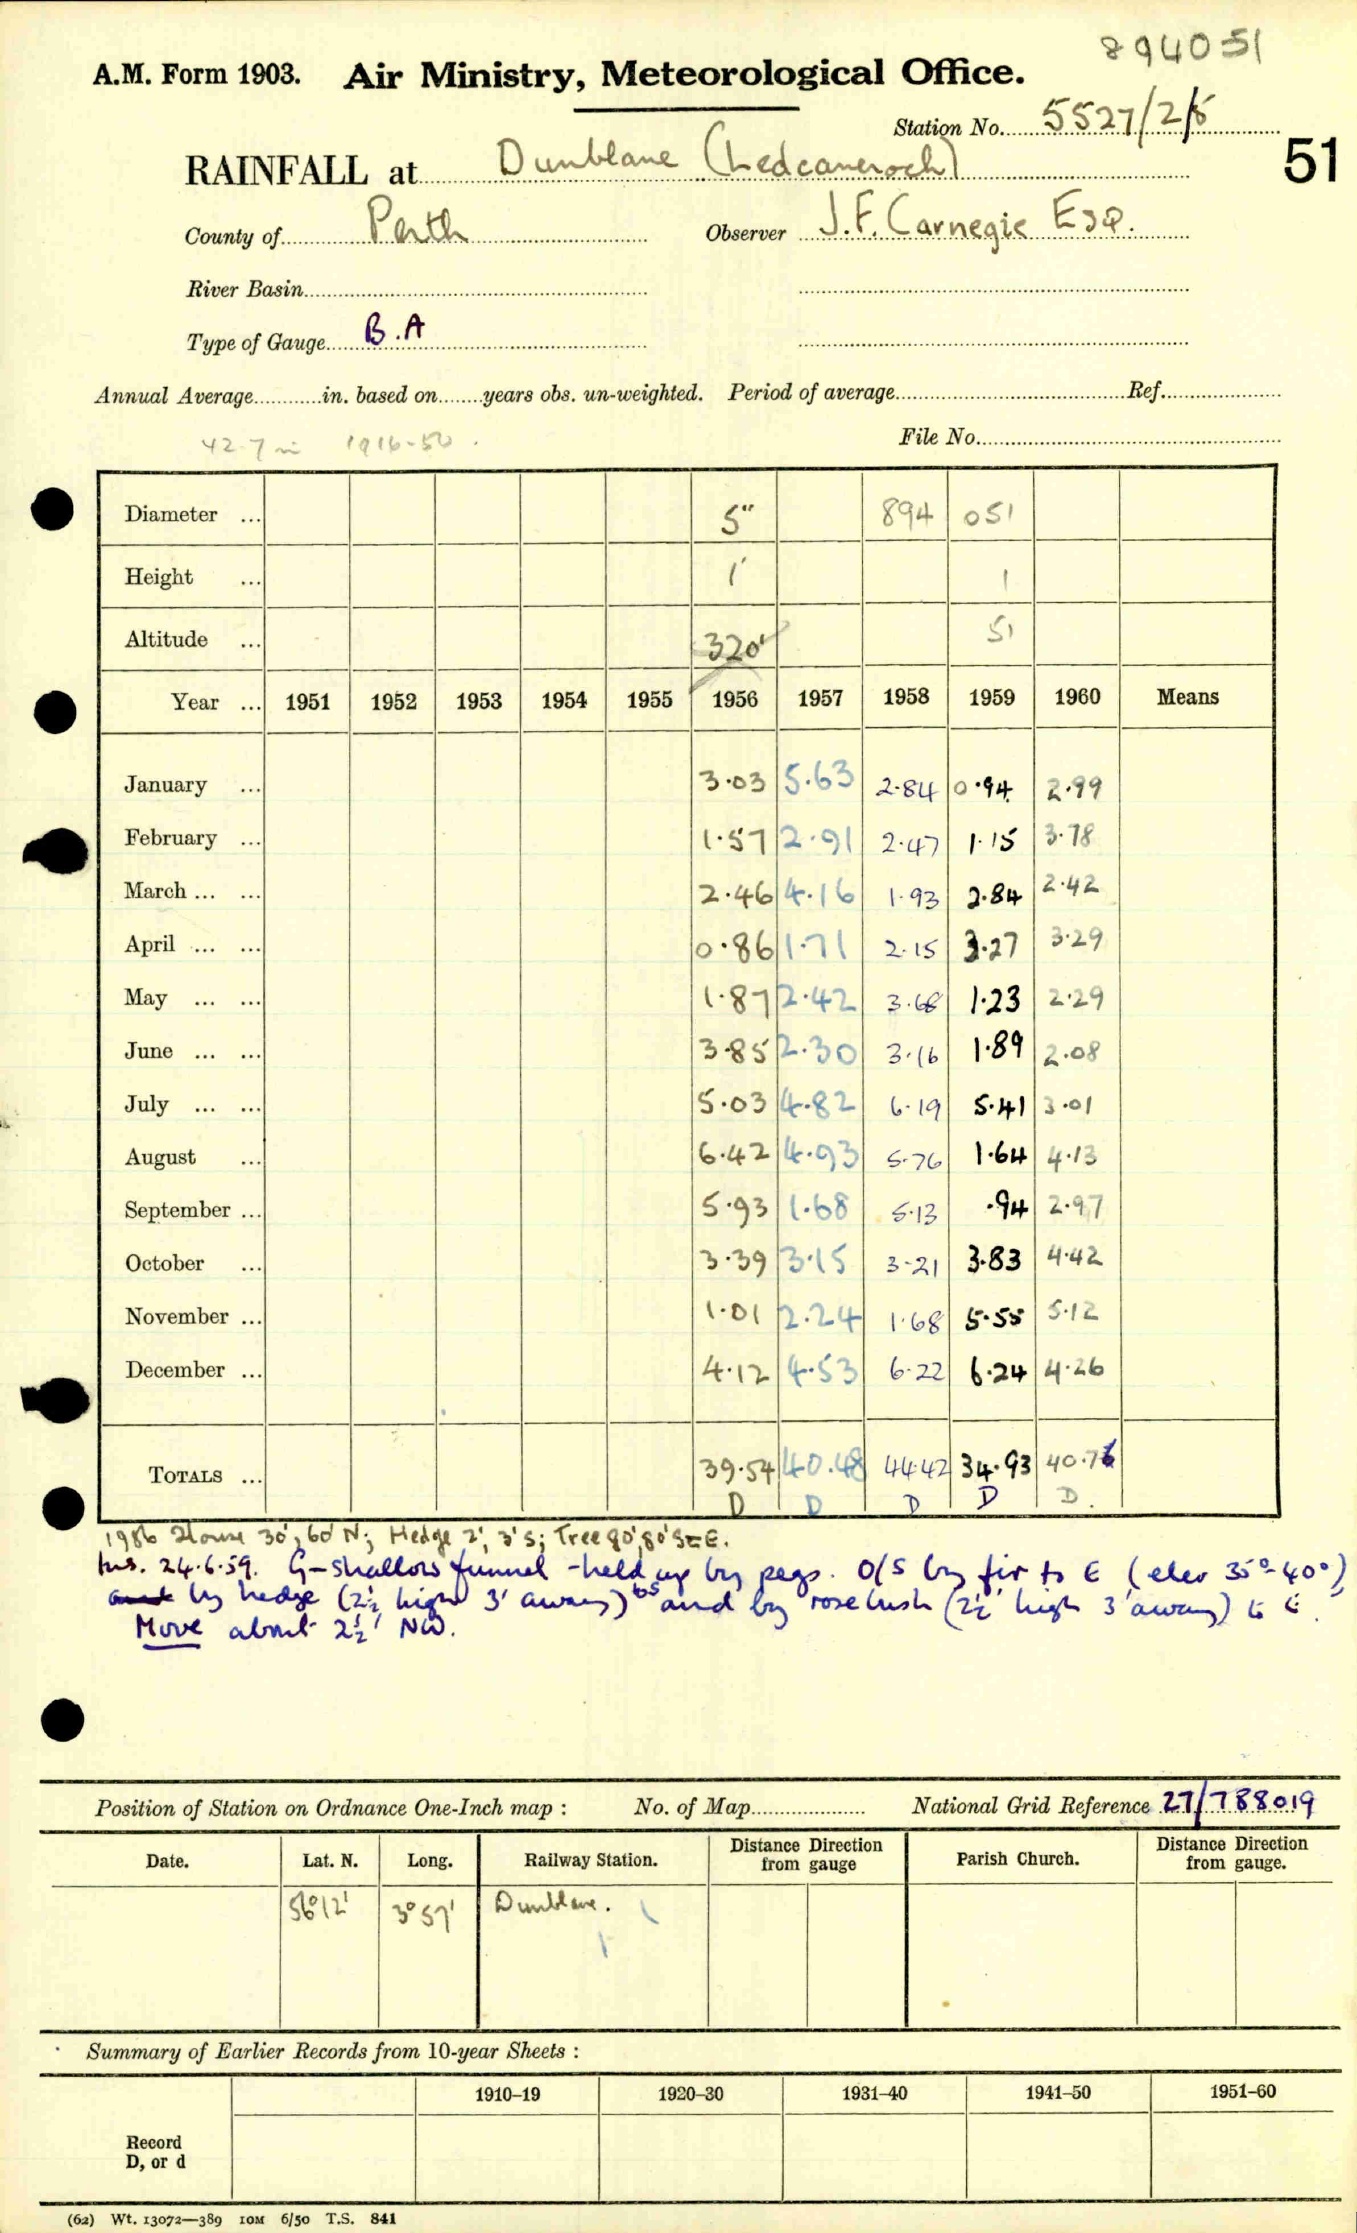 894051
A.M. Form 1903. Air Ministry, Meteorological Office.
Station No. 5527/2/5
51
RAINFALL at Dunblane (Ledcameroch)
County of Perth Observer J.F. Carnegie Esq.
River Basin
Type of Gauge B.A
Annual Average in. based on years obs. un-weighted. Period of average Ref.
42.7 in 1916-50. File No.
Diameter ... 5" 894 051
Height ... 1' 1
Altitude ... 320' 51
Year ... 1951 1952 1953 1954 1955 1956 1957 1958 1959 1960 Means
January ... 3.03 5.63 2.84 0.94 2.99
February ... 1.57 2.91 2.47 1.15 3.78
March ... ... 2.46 4.16 1.93 2.84 2.42
April ... ... 0.86 1.71 2.15 3.27 3.29
May ... ... 1.87 2.42 3.68 1.23 2.29
June ... ... 3.85 2.30 3.16 1.89 2.08
July ... ... 5.03 4.82 6.19 5.41 3.01
August ... 6.42 4.93 5.76 1.64 4.13
September ... 5.93 1.68 5.13 .94 2.97
October ... 3.39 3.15 3.21 3.83 4.42
November ... 1.01 2.24 1.68 5.55 5.12
December ... 4.12 4.53 6.22 6.24 4.26
TOTALS ... 39.54 40.48 44.42 34.93 40.76
D D D D D.
House 30', 60' N; Hedge 2', 3' S; Tree 80', 80' S E.
Ins. 24.6.59. G—shallow funnel - held up by pegs. O/S by fir to E (elev 35°-40°),
by hedge (2½' high 3' away) to S and by rose bush (2½' high 3' away) to E.
Move about 2½' NW.
Position of Station on Ordnance One-Inch map : No. of Map National Grid Reference 27/788019
Date. Lat. N. Long. Railway Station. Distance Direction from gauge Parish Church. Distance Direction from gauge.
56°12' 3°57' Dunblane.
Summary of Earlier Records from 10-year Sheets :
1910–19 1920–30 1931–40 1941–50 1951–60
Record
D, or d
(62) Wt. 13072—389 10M 6/50 T.S. 841